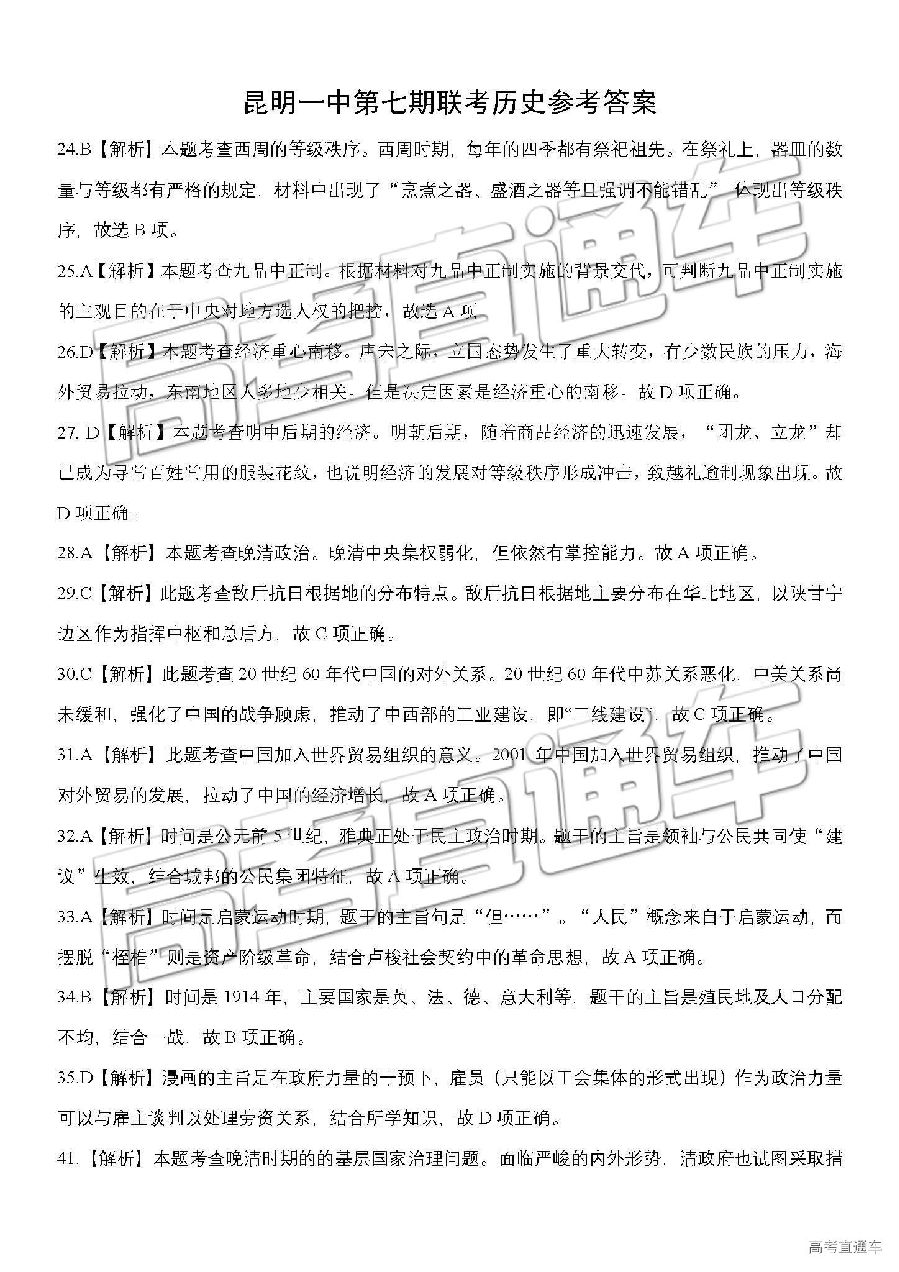 昆明一中第七期联考历史参考答案
24.B【解析】本题考查西周的等级秩序。西周时期，每年的四季都有祭祀祖先。在祭礼上，器皿的数
量与等级都有严格的规定，材料中出现了“烹煮之器、盛酒之器等且强调不能错乱”，体现出等级秩
序，故选 B 项。
25.A【解析】本题考查九品中正制。根据材料对九品中正制实施的背景交代，可判断九品中正制实施
的主观目的在于中央对地方选人权的把控，故选 A 项
26.D【解析】本题考查经济重心南移。唐宋之际，立国态势发生了重大转变，有少数民族的压力，海
外贸易拉动，东南地区人多地少相关，但是决定因素是经济重心的南移，故 D 项正确。
27. D【解析】本题考查明中后期的经济。明朝后期，随着商品经济的迅速发展，“团龙、立龙”却
已成为寻常百姓常用的服装花纹，也说明经济的发展对等级秩序形成冲击，致越礼逾制现象出现。故
D 项正确。
28.A【解析】本题考查晚清政治。晚清中央集权弱化，但依然有掌控能力。故 A 项正确。
29.C【解析】此题考查敌后抗日根据地的分布特点。敌后抗日根据地主要分布在华北地区，以陕甘宁
边区作为指挥中枢和总后方，故 C 项正确。
30.C【解析】此题考查 20 世纪 60 年代中国的对外关系。20 世纪 60 年代中苏关系恶化，中美关系尚
未缓和，强化了中国的战争顾虑，推动了中西部的工业建设，即“三线建设”，故 C 项正确。
31.A【解析】此题考查中国加入世界贸易组织的意义。2001 年中国加入世界贸易组织，推动了中国
对外贸易的发展，拉动了中国的经济增长，故 A 项正确。
32.A【解析】时间是公元前 5 世纪，雅典正处于民主政治时期。题干的主旨是领袖与公民共同使“建
议”生效，结合城邦的公民集团特征，故 A 项正确。
33.A【解析】时间是启蒙运动时期，题干的主旨句是“但……”。“人民”概念来自于启蒙运动，而
摆脱“桎梏”则是资产阶级革命，结合卢梭社会契约中的革命思想，故 A 项正确。
34.B【解析】时间是 1914 年，主要国家是英、法、德、意大利等，题干的主旨是殖民地及人口分配
不均，结合一战，故 B 项正确。
35.D【解析】漫画的主旨是在政府力量的干预下，雇员（只能以工会集体的形式出现）作为政治力量
可以与雇主谈判以处理劳资关系，结合所学知识，故 D 项正确。
41.【解析】本题考查晚清时期的的基层国家治理问题。面临严峻的内外形势，清政府也试图采取措
高考直通车
高考直通车
高考直通车